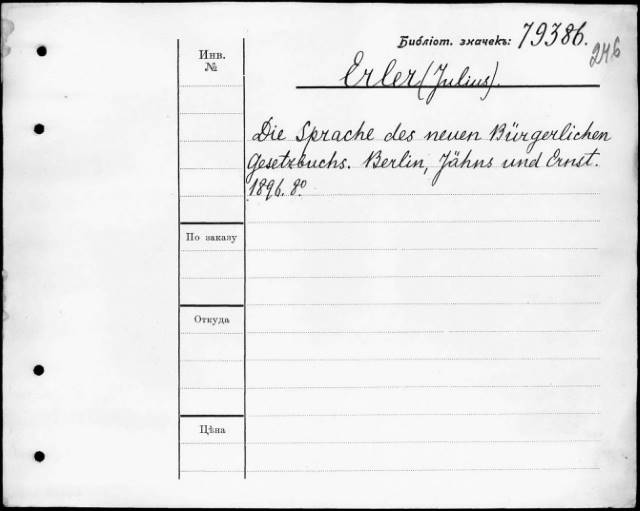 Библіот. значекъ: 79386.
246
Инв.
№
Erler (Julius).
Die Sprache des neuen Bürgerlichen
Gesetzbuchs. Berlin, Jähns und Ernst.
1896. 8°
По заказу
Откуда
Цѣна